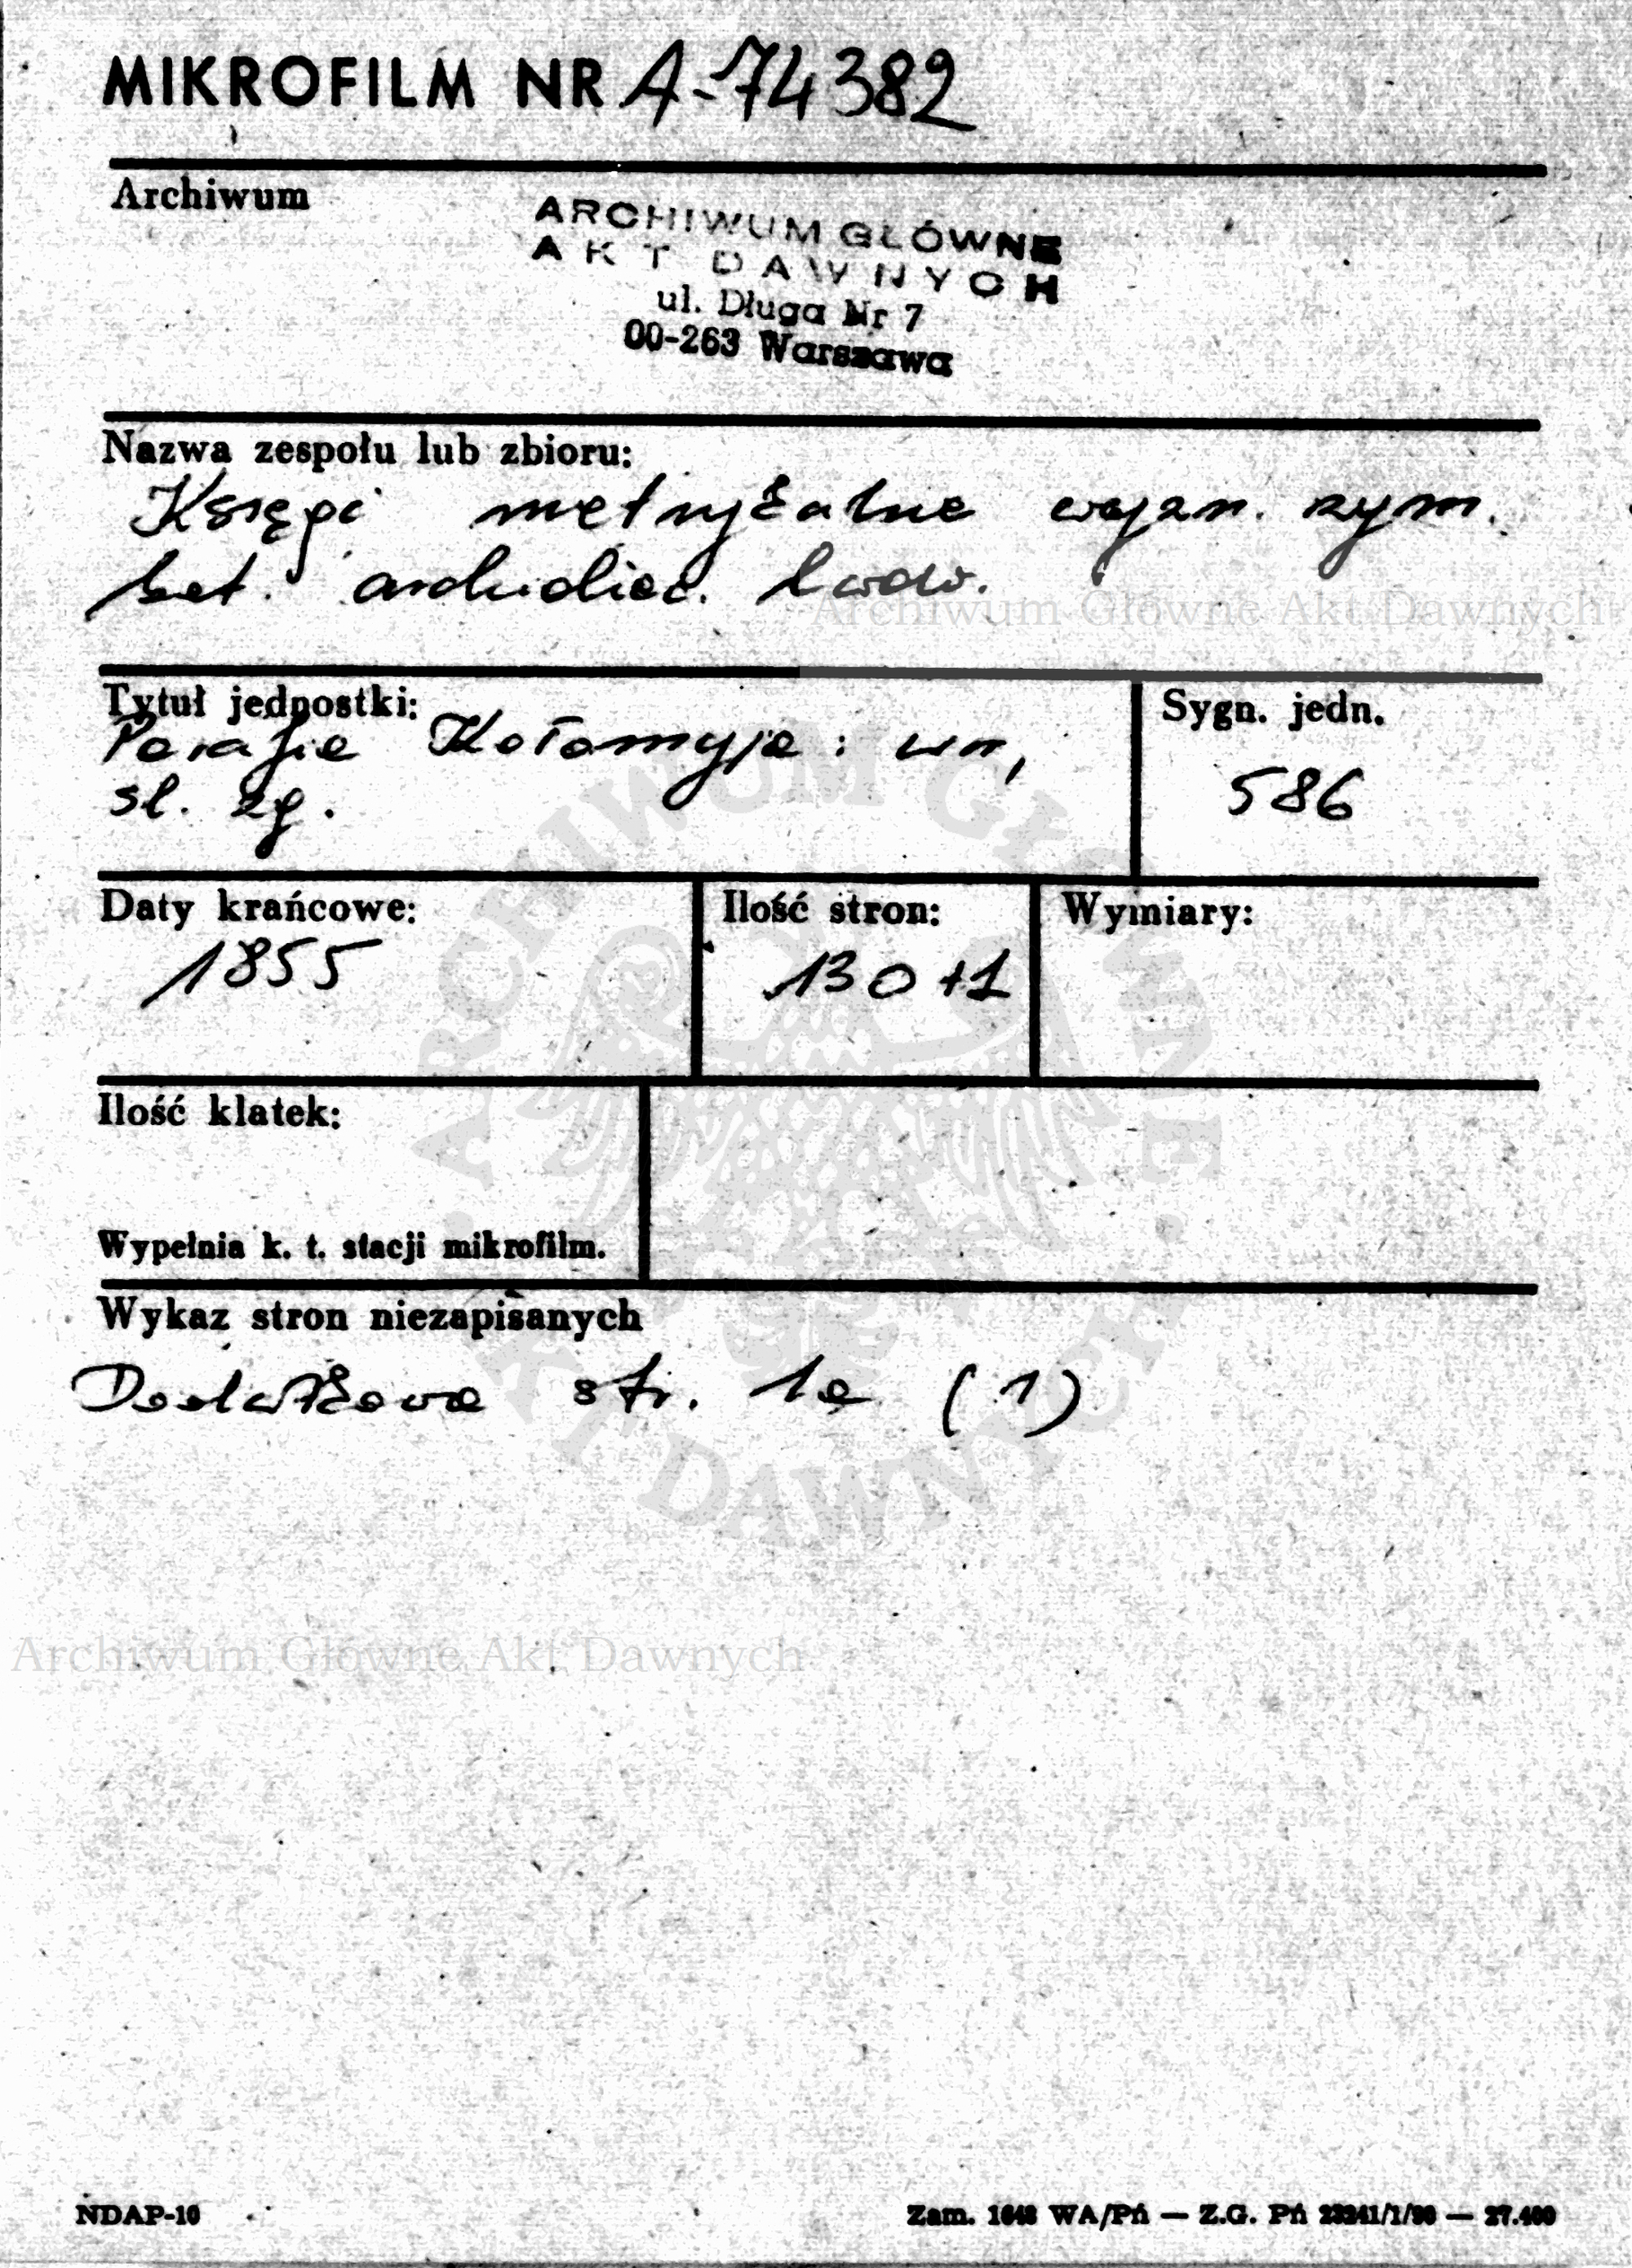 MIKROFILM NR A-74382
Archiwum
ARCHIWUM GŁÓWNE
AKT DAWNYCH
ul. Długa Nr 7
00-263 Warszawa
Nazwa zespołu lub zbioru:
Księgi metrykalne wyzn. rzym.
kat. archidiec. Lwow.
Archiwum Główne Akt Dawnych
Tytuł jednostki:
Parafia Kołomyja: ur,
śl. zg.
Sygn. jedn.
586
Daty krańcowe:
1855
Ilość stron:
130+1
Wymiary:
Ilość klatek:
Wypełnia k. t. stacji mikrofilm.
Wykaz stron niezapisanych
Dodatkowa str. 1a (1)
ARCHIWUM GŁÓWNE
AKT DAWNYCH
Archiwum Główne Akt Dawnych
NDAP-10
Zam. 1648 WA/Pń — Z.G. Pń — 27.400